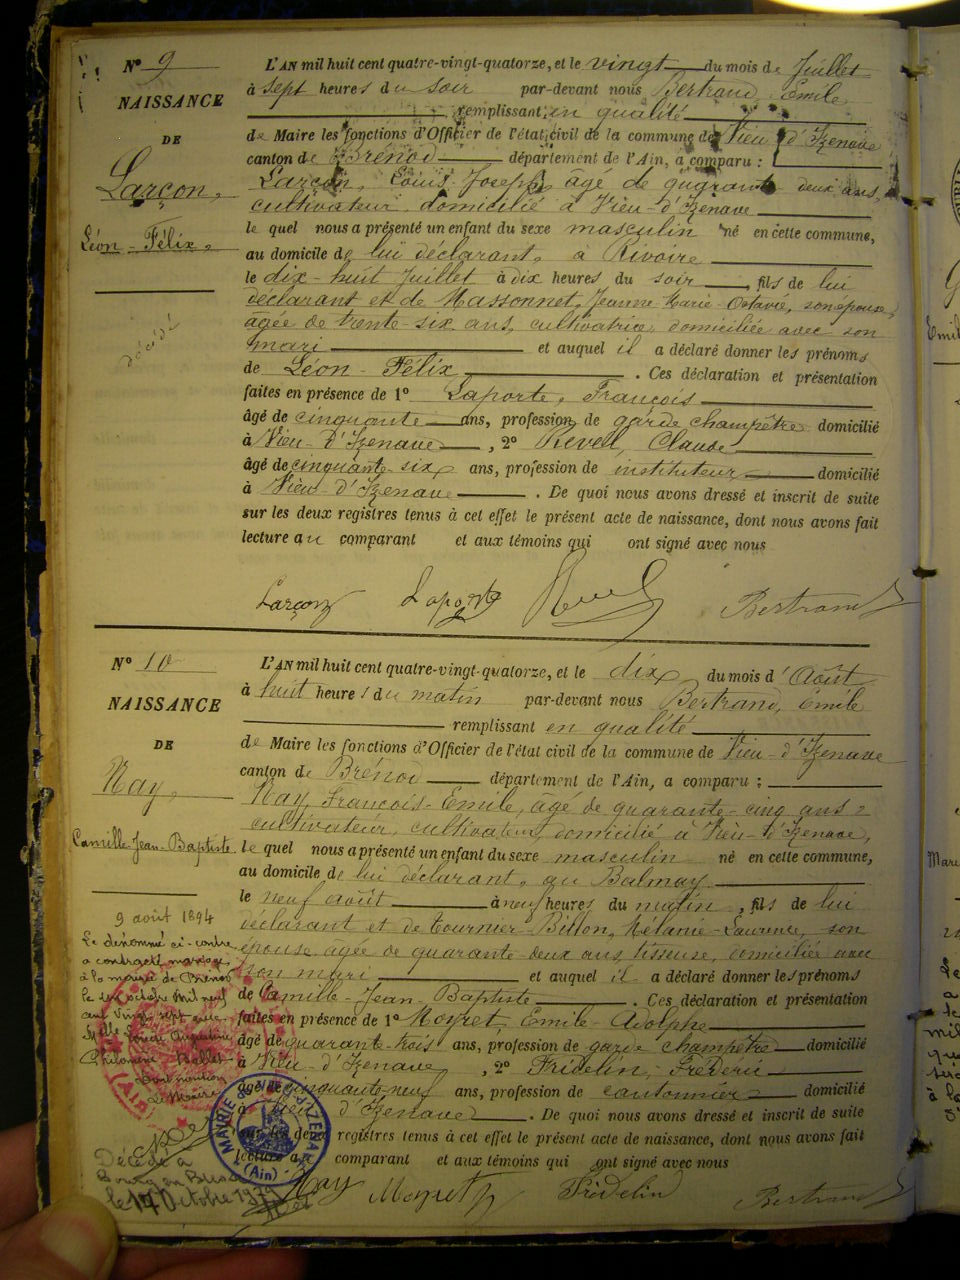 N° 9
NAISSANCE
DE
Larçon,
Léon-Félix,
décédé
L'AN mil huit cent quatre-vingt-quatorze, et le vingt du mois de Juillet
à sept heures du soir par-devant nous Bertrand Emile
remplissant en qualité
de Maire les fonctions d'Officier de l'état civil de la commune de Vieu-d'Izenave
canton de Brénod département de l'Ain, a comparu :
Larçon, Louis Joseph, âgé de quarante deux ans,
cultivateur domicilié à Vieu-d'Izenave
le quel nous a présenté un enfant du sexe masculin né en cette commune,
au domicile de lui déclarant, à Rivoire
le dix-huit Juillet à dix heures du soir, fils de lui
déclarant et de Massonnet, Jeanne-Marie-Octavie, son épouse,
âgée de trente-six ans, cultivatrice domiciliée avec son
mari et auquel il a déclaré donner les prénoms
de Léon-Félix. Ces déclaration et présentation
faites en présence de 1° Laporte, François
âgé de cinquante ans, profession de garde champêtre domicilié
à Vieu-d'Izenave, 2° Reveil, Claude
âgé de cinquante-six ans, profession de instituteur domicilié
à Vieu-d'Izenave. De quoi nous avons dressé et inscrit de suite
sur les deux registres tenus à cet effet le présent acte de naissance, dont nous avons fait
lecture au comparant et aux témoins qui ont signé avec nous
Larçon Laporte Bertrand
N° 10
NAISSANCE
DE
Nay,
Camille-Jean-Baptiste.
L'AN mil huit cent quatre-vingt-quatorze, et le dix du mois d'Août
à huit heures du matin par-devant nous Bertrand, Emile
remplissant en qualité
de Maire les fonctions d'Officier de l'état civil de la commune de Vieu-d'Izenave
canton de Brénod département de l'Ain, a comparu :
Nay, François-Emile, âgé de quarante-cinq ans
cultivateur, cultivateur, domicilié à Vieu-d'Izenave,
le quel nous a présenté un enfant du sexe masculin né en cette commune,
au domicile de lui déclarant, au Balmay
le neuf août à neuf heures du matin, fils de lui
déclarant et de Tournier-Billon, Mélanie-Laurence, son
épouse âgée de quarante-deux ans, tisseuse, domiciliée avec
son mari et auquel il a déclaré donner les prénoms
de Camille-Jean-Baptiste. Ces déclaration et présentation
faites en présence de 1° Moyret, Emile-Adolphe
âgé de quarante-trois ans, profession de garde champêtre domicilié
à Vieu-d'Izenave, 2° Fridelin, Frédéric
âgé de cinquante-neuf ans, profession de cantonnier domicilié
à Vieu d'Izenave. De quoi nous avons dressé et inscrit de suite
sur les deux registres tenus à cet effet le présent acte de naissance, dont nous avons fait
lecture au comparant et aux témoins qui ont signé avec nous
Nay Moyret Fridelin Bertrand
9 août 1894
Le dénommé ci-contre
a contracté mariage
à la mairie de Brénod
le six octobre mil neuf
cent vingt sept avec
Melle Augustine
Philomène Ballet
Dont mention
Le Maire
MAIRIE DE VIEU-D'IZENAVE
(Ain)
Décédé à
Bourg en Bresse
le 14 Octobre 1979